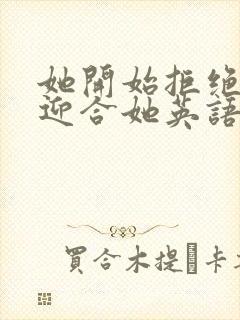 她開始拒绝
迎合她英語
買合木提·卡